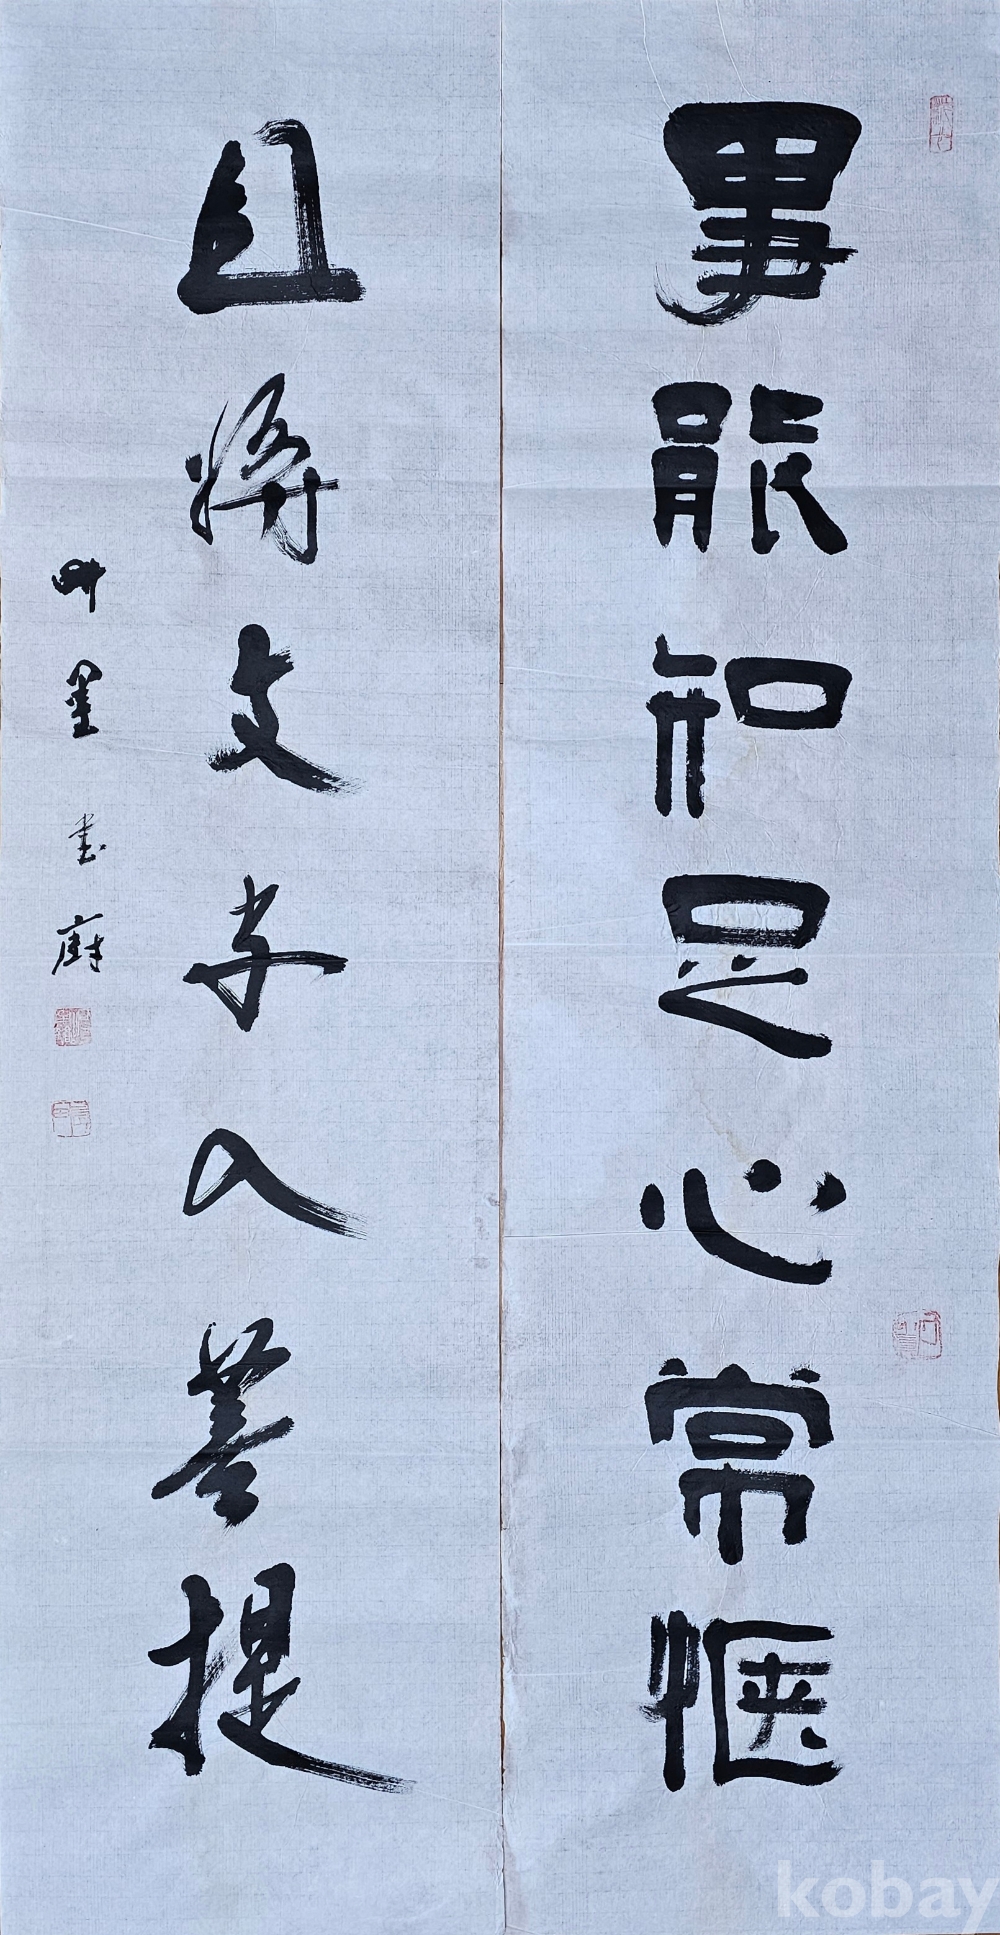 事能知足心常愜
且將文字入菩提
竹里書廚
kobay